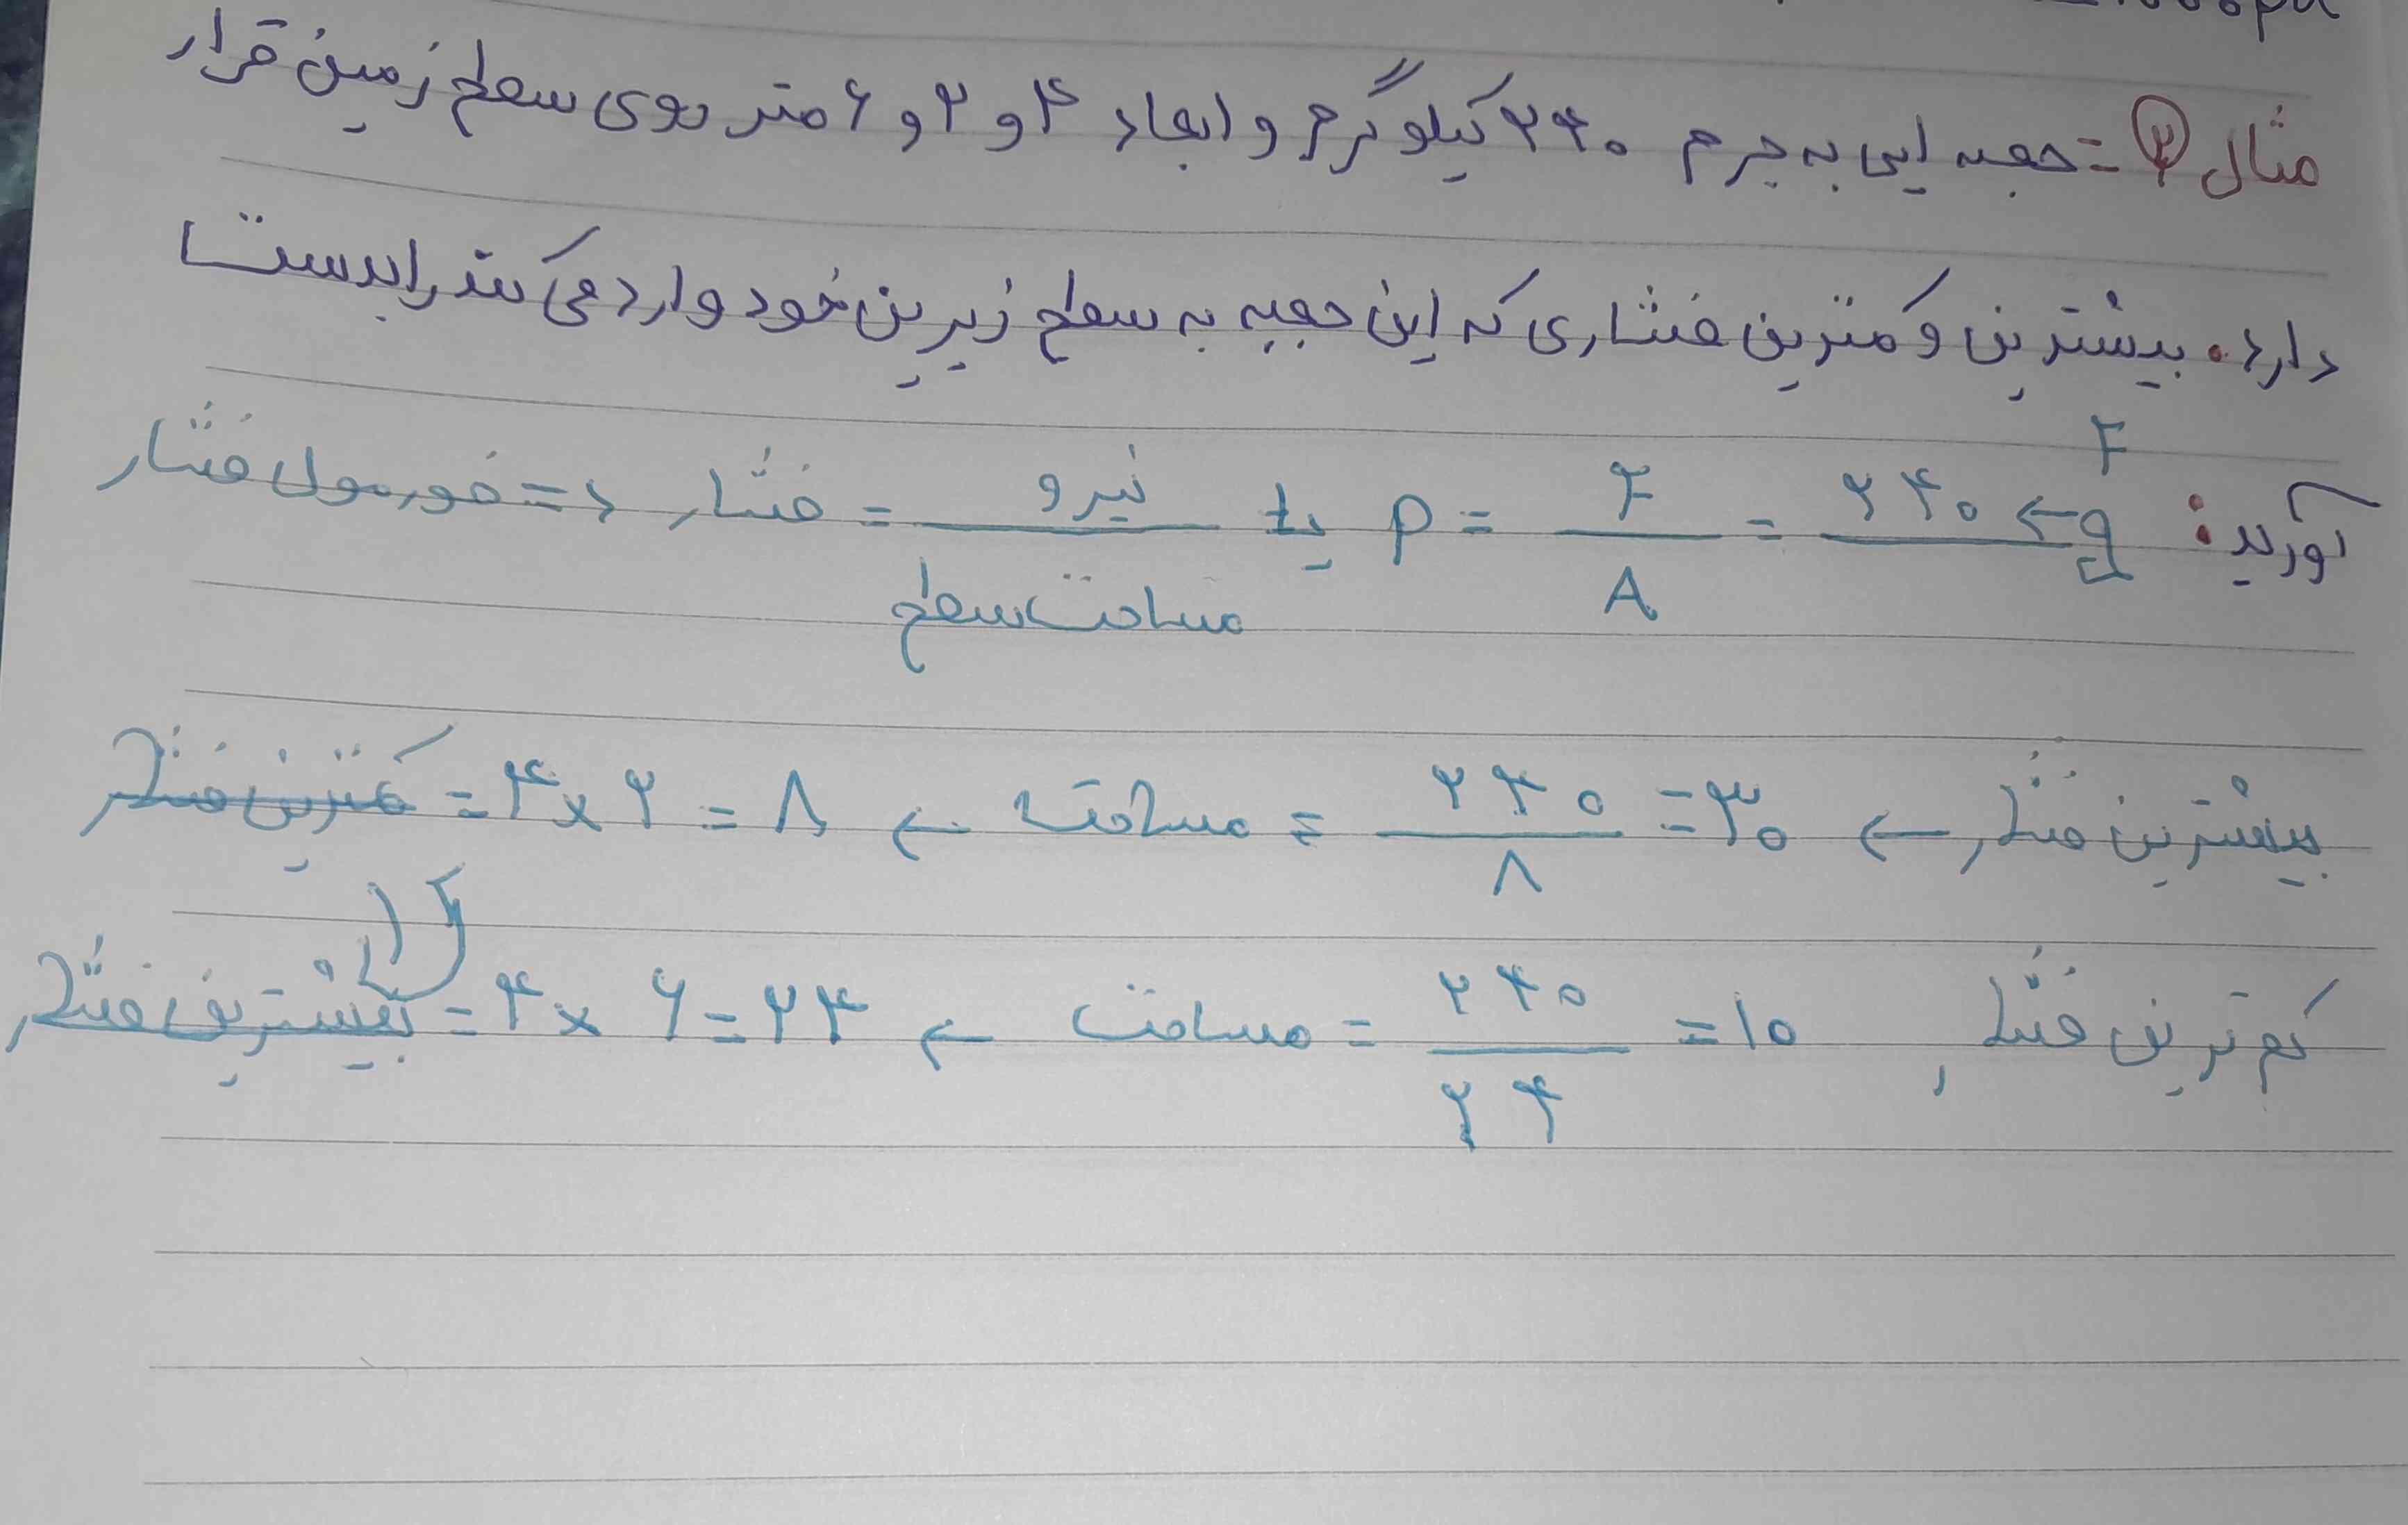 مثال ۲ = جعبه ایی به جرم ۲۴۰ کیلوگرم و ابعاد ۴ و ۲ و ۶ متر روی سطح زمین قرار
دارد. بیشترین و کمترین فشاری که این جعبه به سطح زیرین خود وارد می کند را بدست
آورید: F
فورمول فشار => فشار = نیرو / مساحت سطح یا P = F / A = ۲۴۰
کمترین فشار = ۴ × ۲ = ۸ ← مساحت = ۲۴۰ / ۸ = ۳۰ ← بیشترین فشار
بیشترین فشار = ۴ × ۶ = ۲۴ ← مساحت = ۲۴۰ / ۲۴ = ۱۰ کم ترین فشار